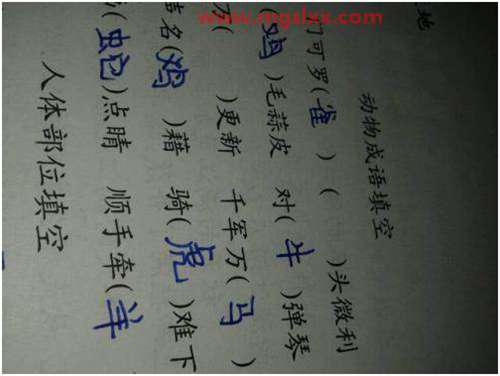 www.mgslxx.com
地
动物成语填空
门可罗(雀) ( )头微利
(鸡)毛蒜皮 对(牛)弹琴
万( )更新 千军万(马)
名(鸡)籍 骑(虎)难下
(蛇)点睛 顺手牵(羊)
人体部位填空